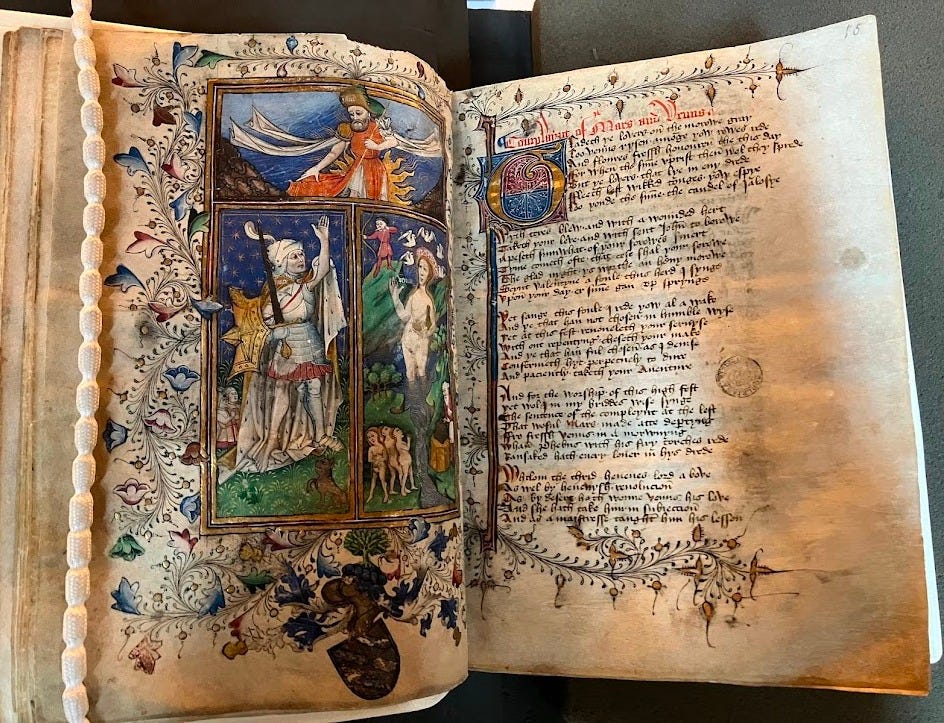 15
Compleynt of Mars and Venus
Gladeth ye lovers on the morowe gray
Loo Venus rysen amonge yow rowes rede
And floures fressh honouren the this day
For when the sune uprist then wol they sprede
But ye lovers that lye in any drede
Fleeth lest wikked tonges yow espye
Lo yonde the sune the candel of Jalosye
Wyth teres blew and with a wounded hert
Taketh your leve and with seint John to borowe
Apeseth sumwhat of your sorowes smert
Tyme cometh eft that cese shal your sorowe
The glad nyght ys worthe an hevy morowe
Seynt Valentyne a foule thus herd I synge
Upon your day er sune gan up sprynge
Yet sange this foule I rede yow al a wake
And ye that han not chosen in humble wyse
Yet at this fest renoveleth your servyse
With out repentyng cheseth your make
And ye that han ful chosen as I devise
Confermeth hyt perpetuely to dure
And paciently taketh your Aventure
And for the worship of this high fest
Yet wol I in my briddes wise synge
The sentence of the compleynt at the lest
That woful Mars made atte departyng
Fro fressh Venus in a morwnyng
Whan Phebus with his firy torches rede
Ransaked hath every lover in hys drede
Whilom the thrid hevenes lord a bove
As wel by hevenysh revolucion
As by desert hath wonne Venus his love
And she hath take him in subieccion
And as a maistresse taught him his lesson